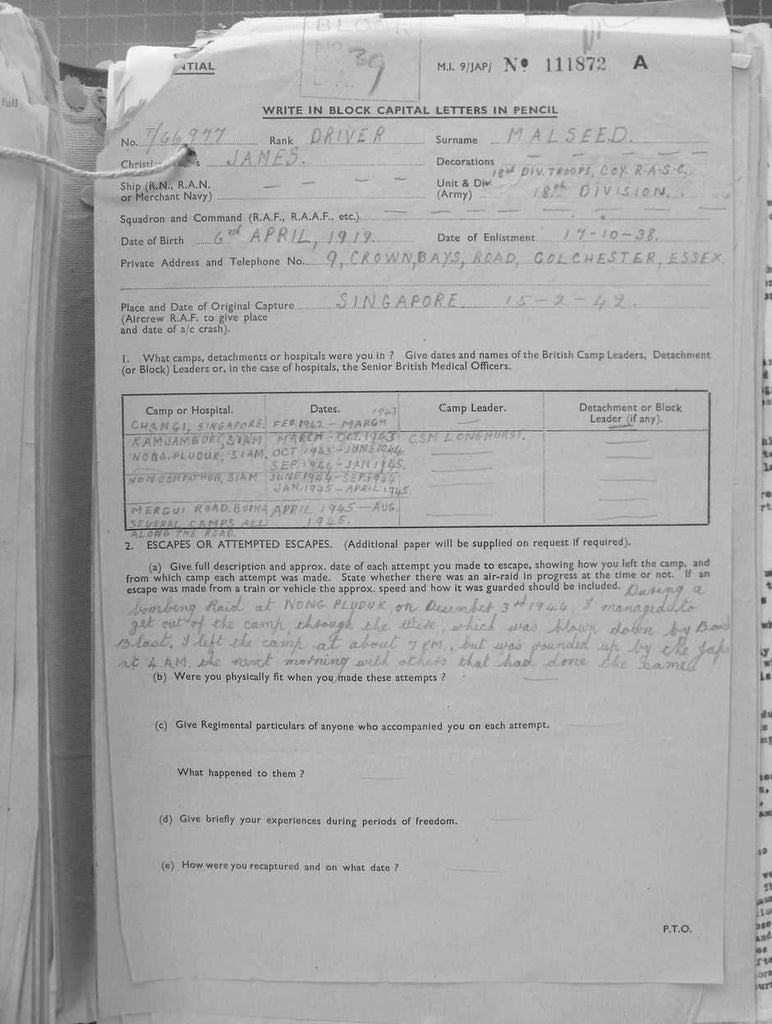 full
NTIAL
BLOCK
No 39
M.I. 9/JAP/ No 111872 A
WRITE IN BLOCK CAPITAL LETTERS IN PENCIL
No. 7/66977 Rank DRIVER Surname MALSEED.
Christi s JAMES. Decorations — — — —
Ship (R.N., R.A.N. or Merchant Navy) — — — —
Unit & Div. (Army) 18th DIV. TROOPS, COY. R.A.S.C.
18th DIVISION.
Squadron and Command (R.A.F., R.A.A.F., etc.) — — — —
Date of Birth 6th APRIL, 1919. Date of Enlistment 17-10-38.
Private Address and Telephone No. 9, CROWN, BAYS, ROAD, COLCHESTER, ESSEX.
Place and Date of Original Capture SINGAPORE 15-2-42.
(Aircrew R.A.F. to give place
and date of a/c crash).
1. What camps, detachments or hospitals were you in ? Give dates and names of the British Camp Leaders, Detachment
(or Block) Leaders or, in the case of hospitals, the Senior British Medical Officers.
Camp or Hospital. Dates. Camp Leader. Detachment or Block Leader (if any).
CHANGI, SINGAPORE. FEB. 1942 - MARCH 1943
KAMJAMBURI, SIAM MARCH - OCT. 1943 CSM LONGHURST.
NONG. PLUDUK, SIAM. OCT 1943 - JUNE 1944
SEP. 1944 - JAN 1945.
NONCOMPATHON, SIAM JUNE 1944 - SEP. 1944
JAN. 1945 - APRIL 1945.
MERGUI ROAD. BURMA APRIL 1945 - AUG.
SEVERAL CAMPS ALL 1945.
ALONG THE ROAD.
2. ESCAPES OR ATTEMPTED ESCAPES. (Additional paper will be supplied on request if required).
(a) Give full description and approx. date of each attempt you made to escape, showing how you left the camp, and
from which camp each attempt was made. State whether there was an air-raid in progress at the time or not. If an
escape was made from a train or vehicle the approx. speed and how it was guarded should be included. During a
bombing Raid at NONG PLUDUK, on December 3rd 1944, I managed to
get out of the camp, through the wire, which was blown down by Bomb
Blast. I left the camp at about 7 P.M., but was pounded up by the Japs
at 4 A.M. the next morning with others that had done the same.
(b) Were you physically fit when you made these attempts ?
(c) Give Regimental particulars of anyone who accompanied you on each attempt.
What happened to them ?
(d) Give briefly your experiences during periods of freedom.
(e) How were you recaptured and on what date ?
P.T.O.